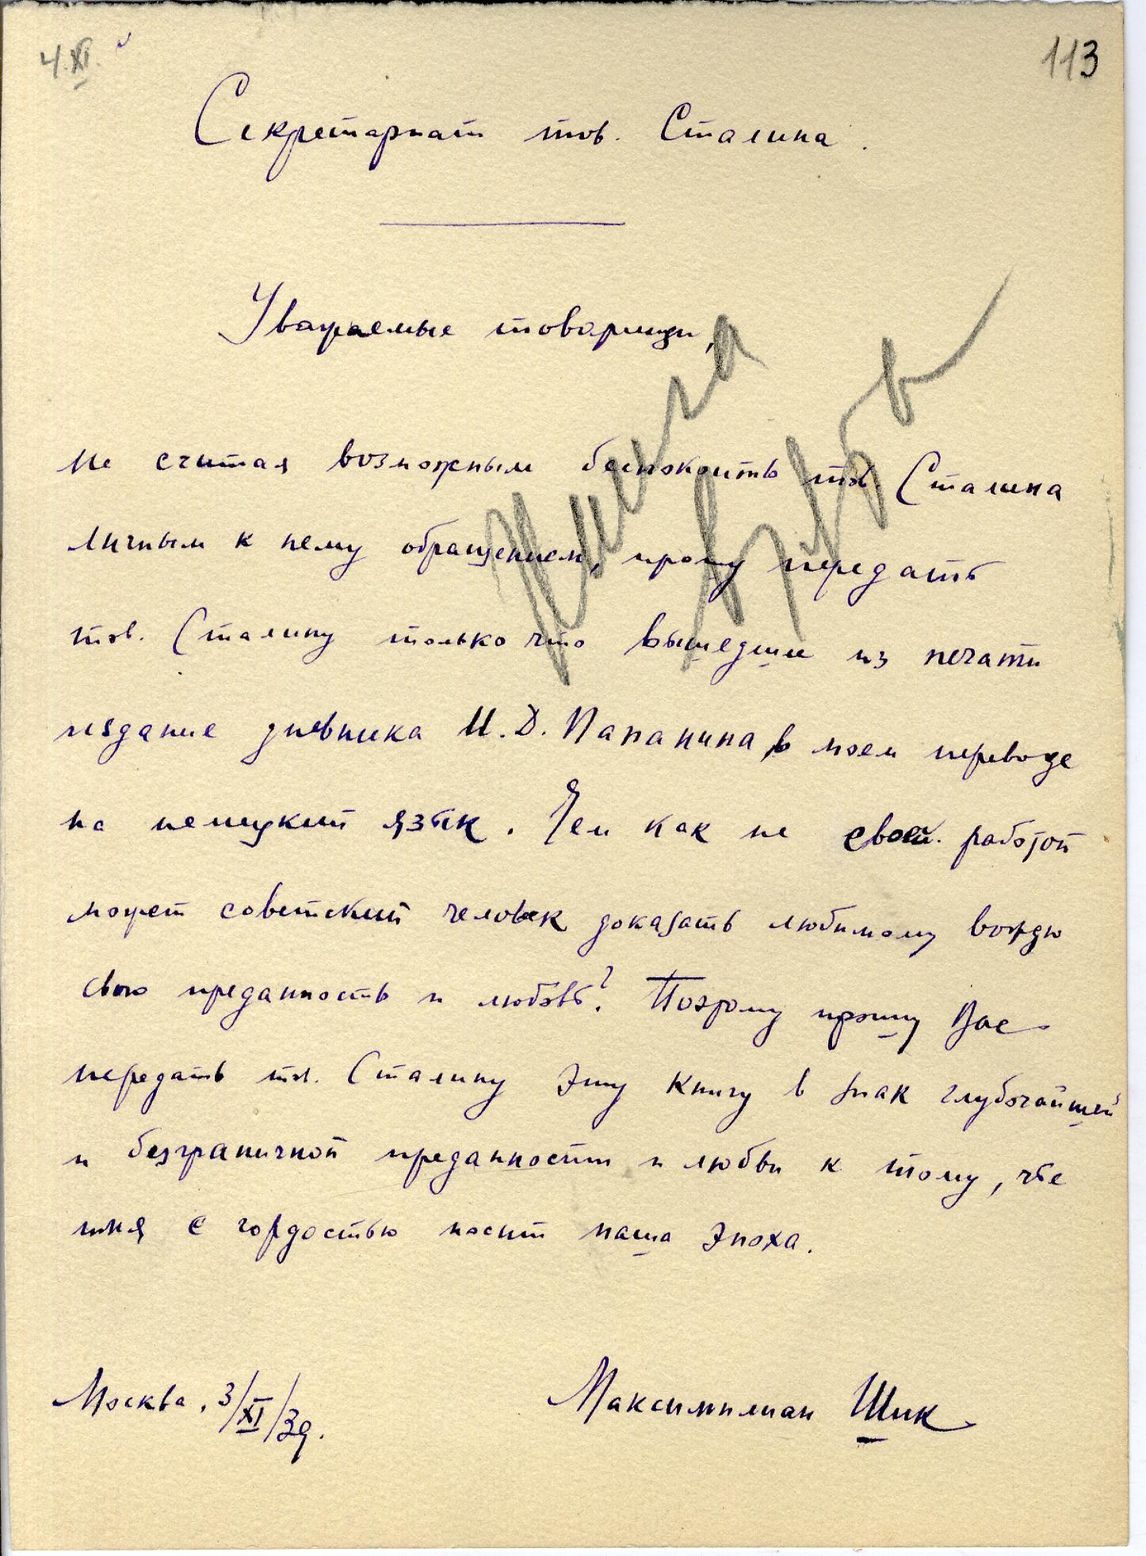 4.XI.
113
Секретариат тов. Сталина.
Уважаемые товарищи,
не считая возможным беспокоить тов. Сталина
личным к нему обращением, прошу передать
тов. Сталину только что вышедшее из печати
издание дневника И. Д. Папанина в моем переводе
на немецкий язык. Чем как не своей работой
может советский человек доказать любимому вождю
свою преданность и любовь? Поэтому прошу Вас
передать тов. Сталину эту книгу в знак глубочайшей
и безграничной преданности и любви к тому, чье
имя с гордостью носит наша эпоха.
Москва, 3/XI/39.
Максимилиан Шик
Книга